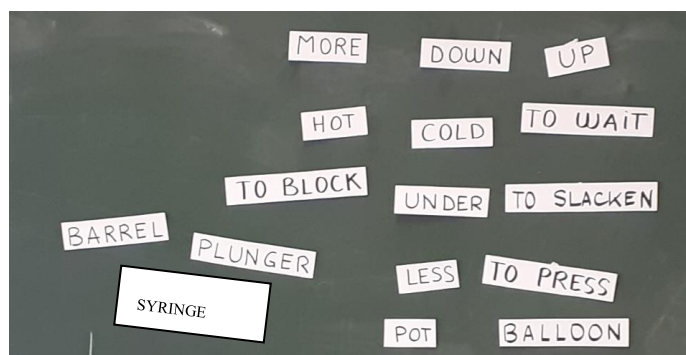 MORE
DOWN
UP
HOT
COLD
TO WAiT
TO BLOCK
UNDER
TO SLACKEN
BARREL
PLUNGER
LESS
TO PRESS
SYRINGE
POT
BALLOON